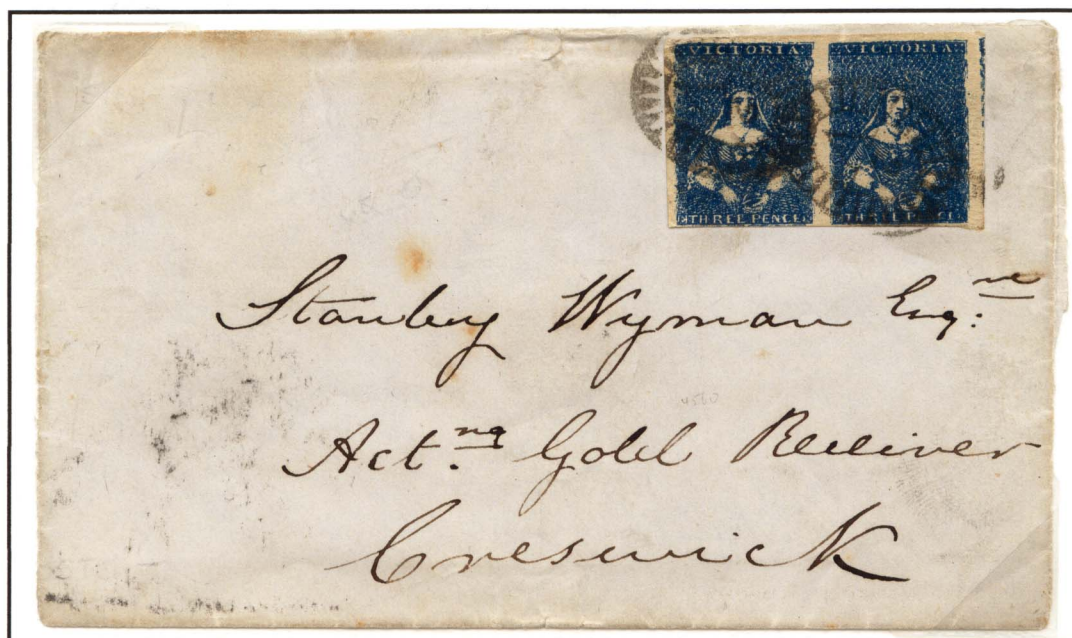 VICTORIA VICTORIA
THREE PENCE THREE PENCE
Stanley Wyman Esq.re
Act.ng Gold Receiver
Creswick